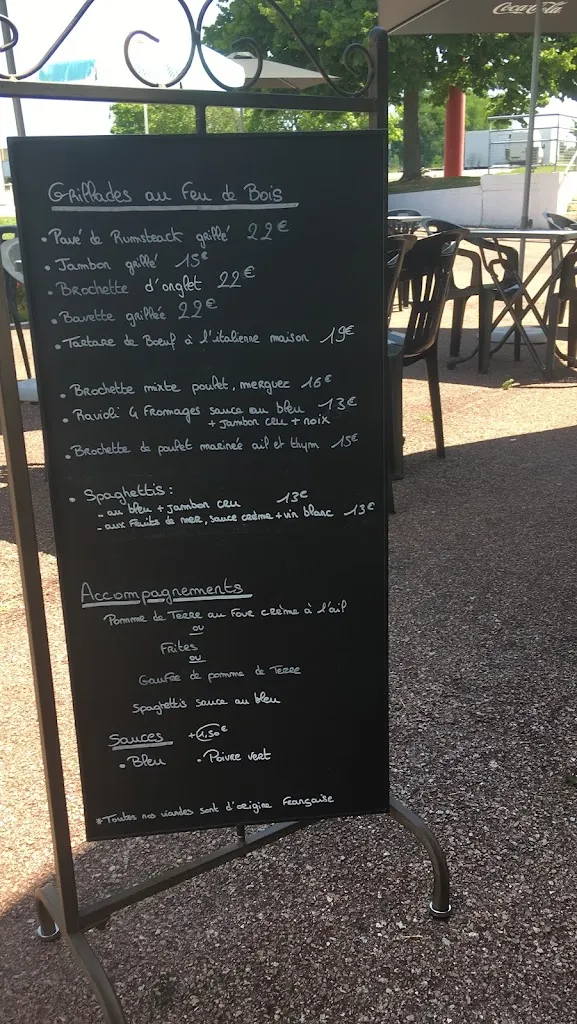 Coca-Cola
Grillades au Feu de Bois
• Pavé de Rumsteack grillé 22€
• Jambon grillé 15€
• Brochette d'onglet 22€
• Bavette grillée 22€
• Tartare de Bœuf à l'italienne maison 19€
• Brochette mixte poulet, merguez 16€
• Ravioli 4 Fromages sauce au bleu 13€
+ Jambon cru + noix
• Brochette de poulet marinée ail et thym 15€
• Spaghettis :
- au bleu + Jambon cru 13€
- aux Fruits de mer, sauce crème + vin blanc 13€
Accompagnements
Pomme de Terre au Four crème à l'ail
ou
Frites
ou
Gaufre de pomme de Terre
Spaghettis sauce au bleu
Sauces +1,50€
• Bleu • Poivre vert
*Toutes nos viandes sont d'origine Française